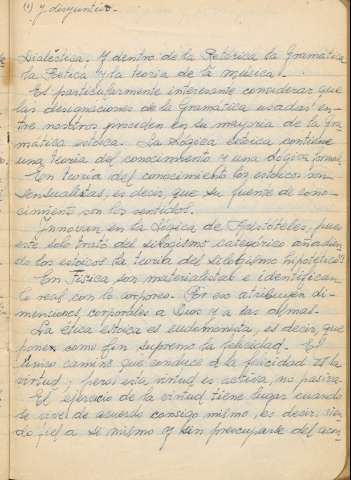 (1) y disyuntivo.
Dialéctica. Y dentro de la Retórica la Gramática
la Poética y la teoría de la música.
Es particularmente interesante considerar que
las designaciones de la Gramática usadas en-
tre nosotros proceden en su mayoría de la Gra-
mática estoica. La Lógica estoica contiene
una teoría del conocimiento y una lógica formal.
En teoría del conocimiento los estoicos son
sensualistas, es decir, que su fuente de cono-
cimiento son los sentidos.
Innovan en la Lógica de Aristóteles, pues
este solo trató del silogismo categórico añadien-
do los estoicos la teoría del silogismo hipotético (1)
En Física son materialistas e identifican
lo real con lo corpóreo. Por eso atribuyen di-
mensiones corporales a Dios y a las almas.
La ética estoica es eudemonista, es decir, que
ponen como fin supremo la felicidad. El
único camino que conduce a la felicidad es la
virtud, pero esta virtud es activa, no pasiva.
El ejercicio de la virtud tiene lugar cuando
se vive de acuerdo consigo mismo, es decir, sien-
do fiel a si mismo y sin preocuparse del acon-